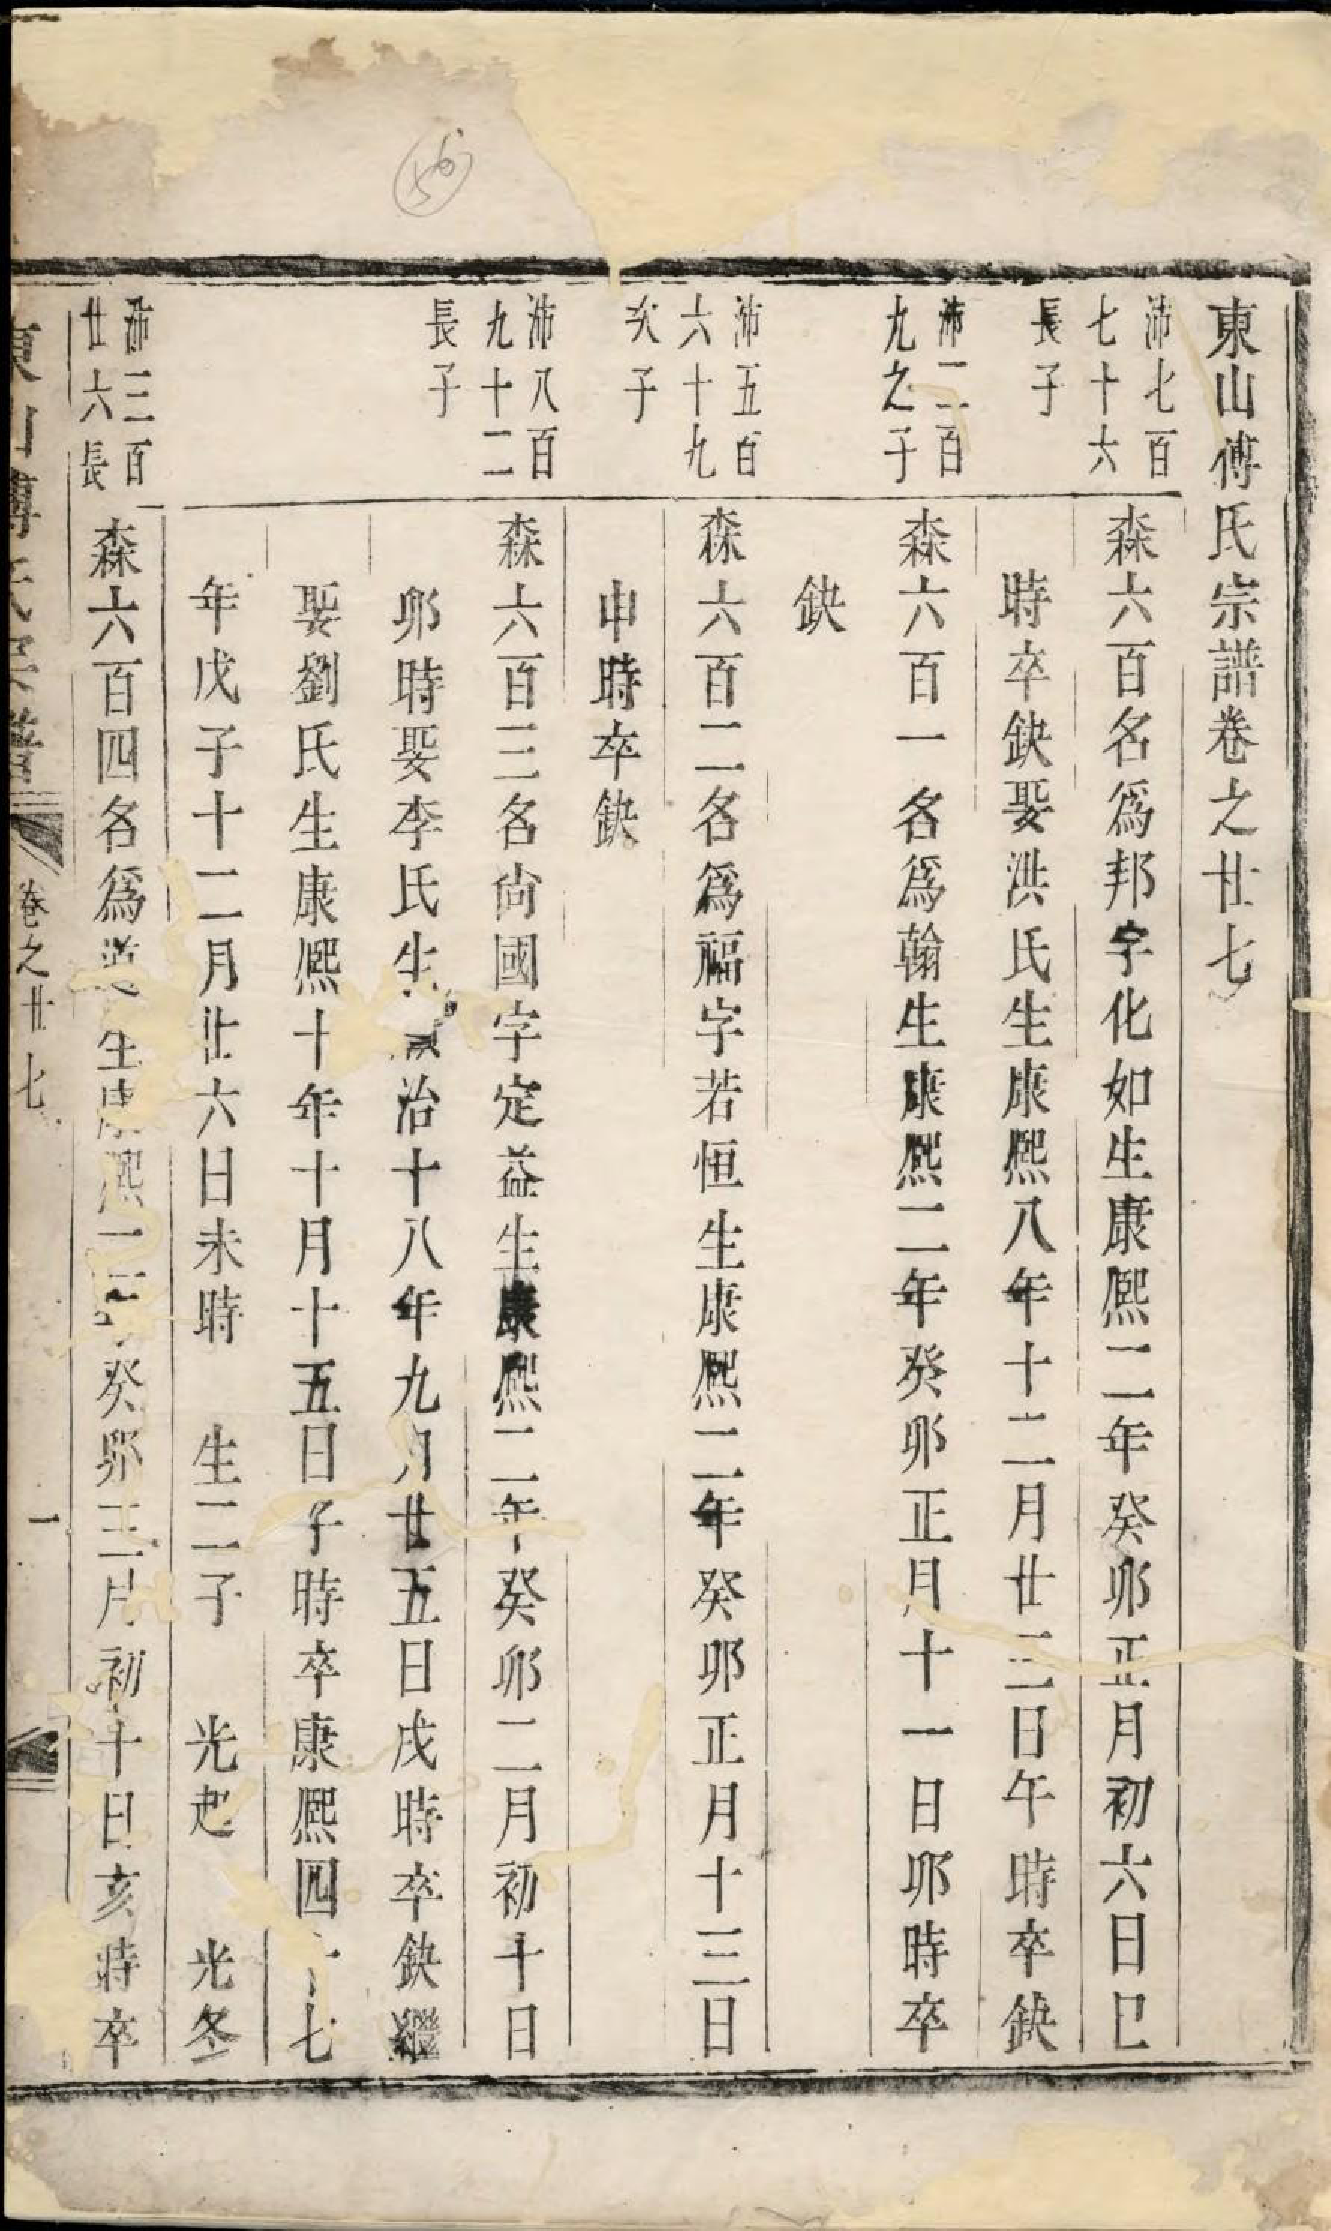 東山傅氏宗譜卷之廿七
沛七百
七十六
長子
森六百名爲邦字化如生康熙二年癸卯正月初六日巳
時卒缺娶洪氏生康熙八年十二月廿三日午時卒缺
沛二百
九之子
森六百一名爲翰生康熙二年癸卯正月十一日卯時卒
缺
沛五百
六十九
次子
森六百二名爲福字若恒生康熙二年癸卯正月十三日
申時卒缺
沛八百
九十二
長子
森六百三名尙國字定益生康熙二年癸卯二月初十日
卯時娶李氏生順治十八年九月廿五日戌時卒缺繼
娶劉氏生康熙十年十月十五日子時卒康熙四十七
年戊子十二月廿六日未時 生二子 光起 光冬
沛三百
廿六長
森六百四名爲道生康熙二年癸卯三月初十日亥時卒
東山傅氏宗譜
卷之廿七
一
56